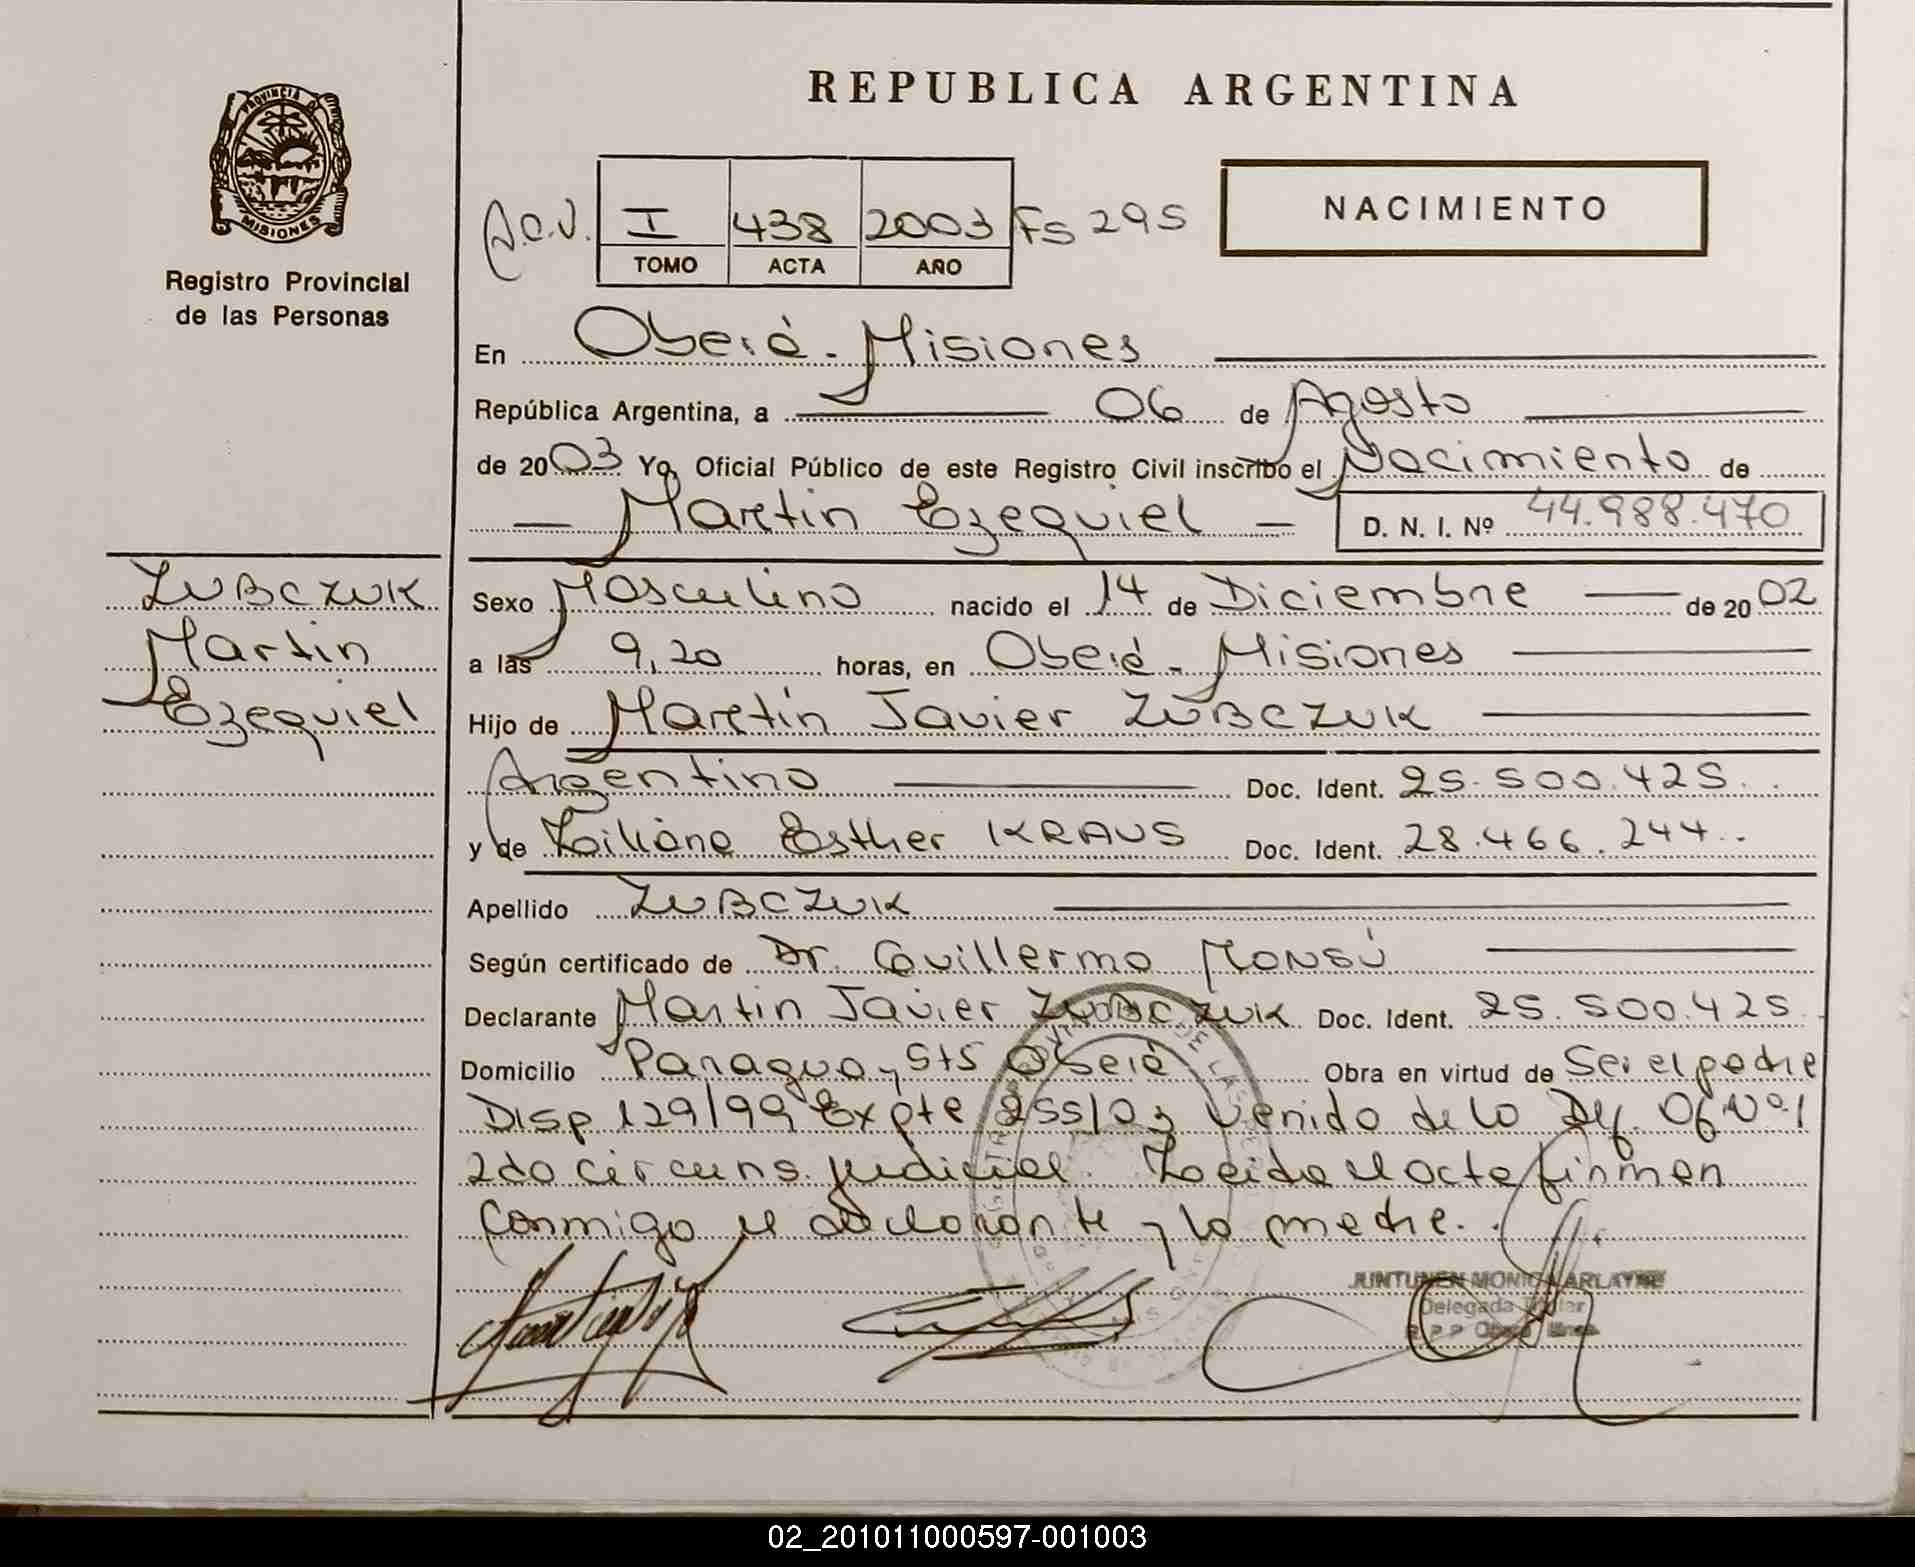 REPUBLICA ARGENTINA
PROVINCIA D MISIONES
Registro Provincial
de las Personas
A.C.V. I 438 2003 Fs 295
TOMO ACTA AÑO
NACIMIENTO
En Oberá - Misiones
República Argentina, a 06 de Agosto
de 2003 Yo, Oficial Público de este Registro Civil inscribo el Nacimiento de
Martin Ezequiel D. N. I. Nº 44.988.470
ZUBCZUK
Martin
Ezequiel
Sexo Masculino nacido el 14 de Diciembre de 2002
a las 9,20 horas, en Oberá - Misiones
Hijo de Martín Javier ZUBCZUK
Argentino Doc. Ident. 25.500.425
y de Liliana Esther KRAUS Doc. Ident. 28.466.244
Apellido ZUBCZUK
Según certificado de Dr. Guillermo Monsú
Declarante Martin Javier ZUBCZUK Doc. Ident. 25.500.425
Domicilio Paraguay S/S Oberá Obra en virtud de Ser el padre
Disp 129/99 Expte 255/03 venido de la Def. Of Nº 1
2da circuns. judicial. Leida el acta firman
conmigo el declarante y la madre.
JUNTUNEN MONICA ARLAYNE
Delegada Titular
R P P Oberá
02_201011000597-001003